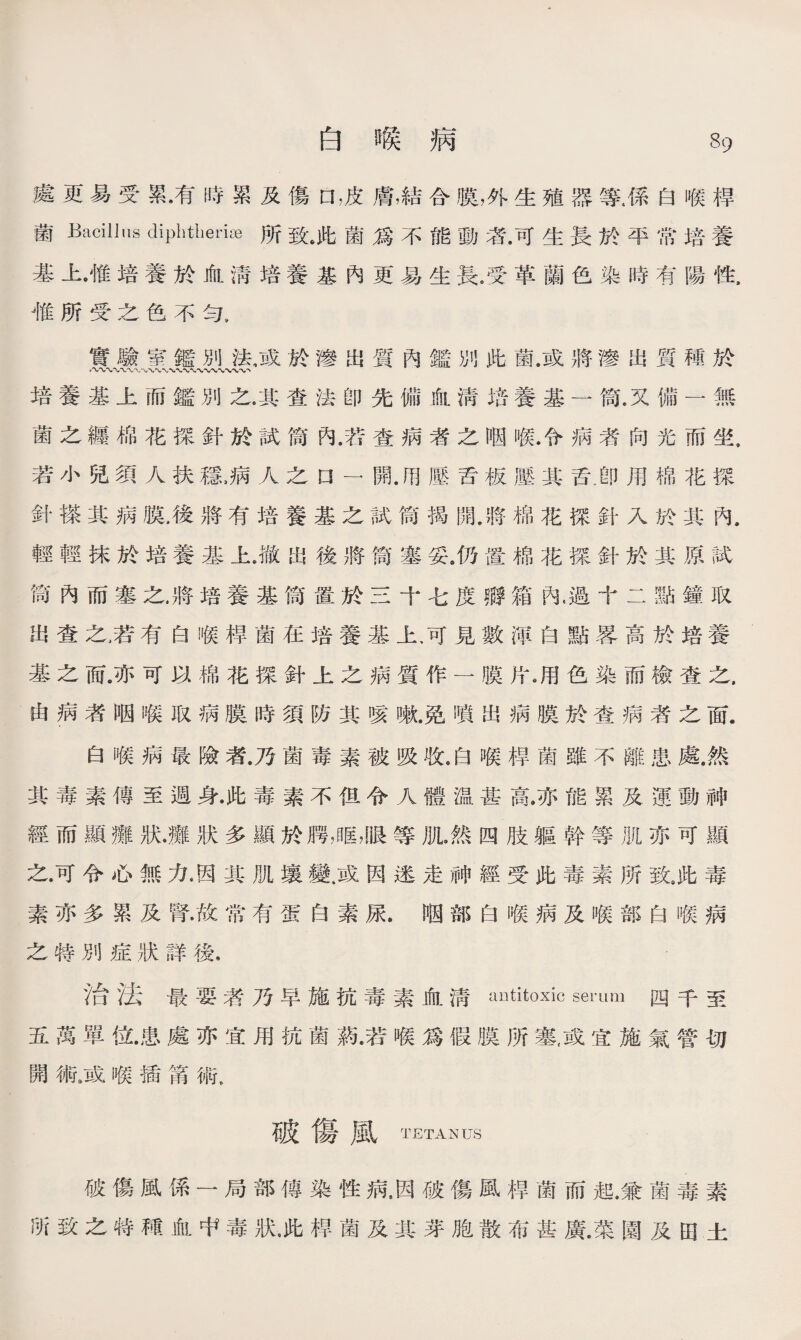 白喉病 89
處更易受累.有時累及傷口,皮膚,結合膜,外生殖器等.係白喉桿
菌 Bacillus diphtheriæ 所致.此菌爲不能動者.可生長於平常培養
基上.惟培養於血清培養基內更易生長.受革蘭色染時有陽性.
惟所受之色不勻.
實驗室鑑別法.或於滲出質內鑑別此菌.或將滲出質種於
培養基上而鑑別之.其查法卽先備血清培養基一筒.又備一無
菌之纏棉花探針於試筒內.若查病者之咽喉.令病者向光而坐.
若小兒須人扶穩.病人之口一開.用壓舌板壓其舌.卽用棉花探
針搽其病膜.後將有培養基之試筒揭開.將棉花探針入於其內.
輕輕抹於培養基上.撤出後將筒塞妥.仍置棉花探針於其原試
筒內而塞之.將培養基筒置於三十七度孵箱內.過十二點鐘取
出查之.若有白喉桿菌在培養基上.可見數渾白點畧高於培養
基之面.亦可以棉花探針上之病質作一膜片.用色染而檢查之.
由病者咽喉取病膜時須防其咳嗽.免噴出病膜於查病者之面.
白喉病最險者.乃菌毒素被吸收.白喉桿菌雖不離患處.然
其毒素傳至週身.此毒素不但令人體溫甚高.亦能累及運動神
經而顯癱狀.癱狀多顯於腭,眶,眼等肌.然四肢軀幹等肌亦可顯
之.可令心無力.因其肌壞變.或因迷走神經受此毒素所致.此毒
素亦多累及腎.故常有蛋白素尿. 咽部白喉病及喉部白喉病
之特別症狀詳後.
治法 最要者乃早施抗毒素血清 antitoxic serum 四千至
五萬單位.患處亦宜用抗菌葯.若喉爲假膜所塞,或宜施氣管切
開術.或喉插筩術.
破傷風 TETANUS
破傷風係一局部傳染性病.因破傷風桿菌而起.兼菌毒素
所致之特種血中毒狀.此桿菌及其芽胞散布甚廣.菜園及田土